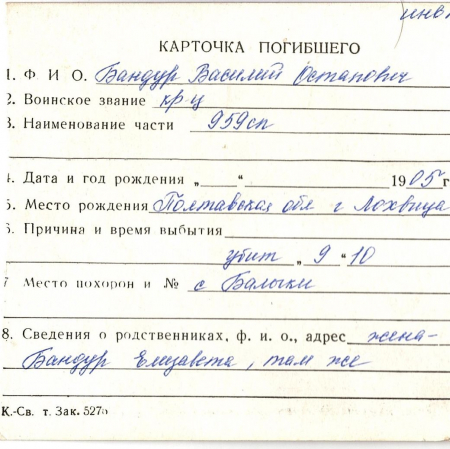 инв
КАРТОЧКА ПОГИБШЕГО
1. Ф И О. Бандур Василий Остапович
2. Воинское звание кр-ц
3. Наименование части 959сп
4. Дата и год рождения „ “ 1905г
5. Место рождения Полтавская обл г Лохвица
6. Причина и время выбытия
убит „ 9 “ 10
7 Место похорон и № с Балыки
8. Сведения о родственниках, ф. и. о., адрес жена-
Бандур Елизавета, там же
К.-Св. т. Зак. 527